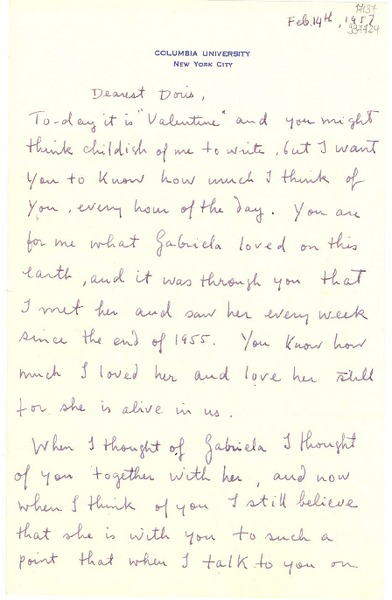 Feb. 14th, 1957
COLUMBIA UNIVERSITY
NEW YORK CITY
Dearest Doris,
To-day it is "Valentine" and you might
think childish of me to write, but I want
you to know how much I think of
you, every hour of the day. You are
for me what Gabriela loved on this
earth, and it was through you that
I met her and saw her every week
since the end of 1955. You know how
much I loved her and love her still
for she is alive in us.
When I thought of Gabriela I thought
of you together with her, and now
when I think of you I still believe
that she is with you to such a
point that when I talk to you on